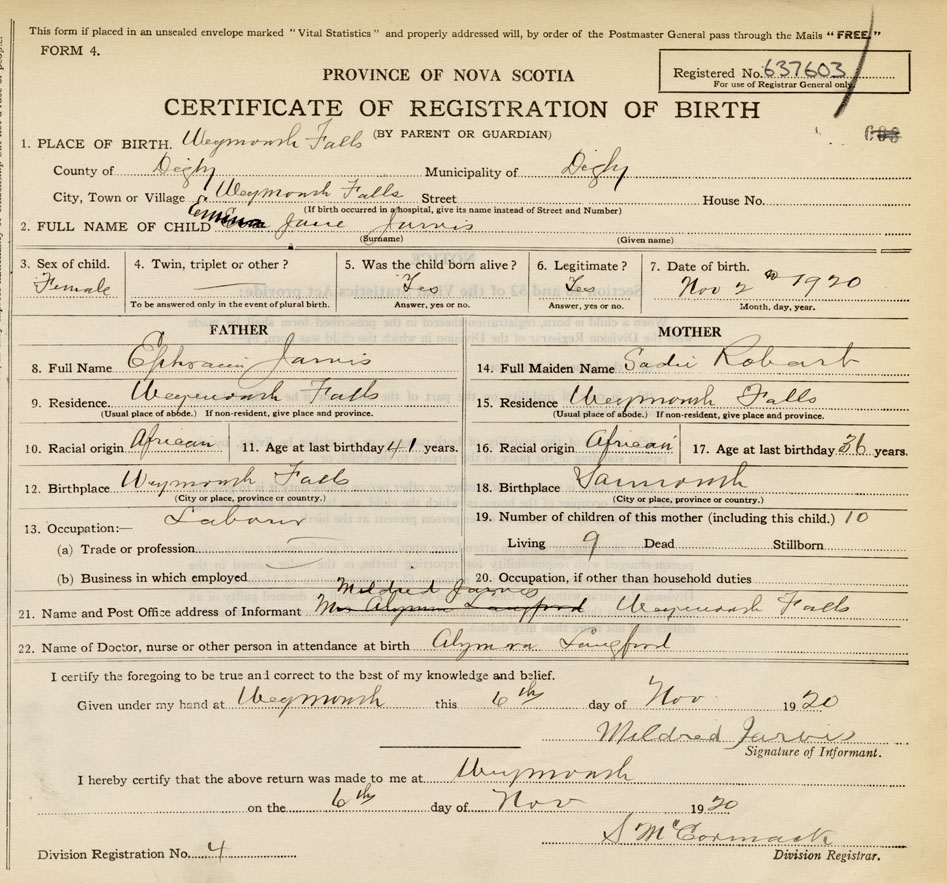 This form if placed in an unsealed envelope marked "Vital Statistics" and properly addressed will, by order of the Postmaster General pass through the Mails "FREE."
FORM 4.
Registered No. 637603
For use of Registrar General only.
PROVINCE OF NOVA SCOTIA
CERTIFICATE OF REGISTRATION OF BIRTH
(BY PARENT OR GUARDIAN)
1. PLACE OF BIRTH. Weymouth Falls
County of Digby Municipality of Digby
City, Town or Village Weymouth Falls Street House No.
(If birth occurred in a hospital, give its name instead of Street and Number)
2. FULL NAME OF CHILD Jane Jarvis
(Surname) (Given name)
3. Sex of child. 4. Twin, triplet or other? 5. Was the child born alive? 6. Legitimate? 7. Date of birth.
Female Yes Yes Nov 2nd 1920
To be answered only in the event of plural birth. Answer, yes or no. Answer, yes or no. Month, day, year.
FATHER MOTHER
8. Full Name Ephraim Jarvis 14. Full Maiden Name Sadie Robart
9. Residence. Weymouth Falls 15. Residence Weymouth Falls
(Usual place of abode.) If non-resident, give place and province. (Usual place of abode.) If non-resident, give place and province.
10. Racial origin African 11. Age at last birthday 41 years. 16. Racial origin African 17. Age at last birthday 36 years.
12. Birthplace Weymouth Falls 18. Birthplace Yarmouth
(City or place, province or country.) (City or place, province or country.)
13. Occupation:— Labour 19. Number of children of this mother (including this child.) 10
(a) Trade or profession Living 9 Dead Stillborn
(b) Business in which employed 20. Occupation, if other than household duties
Mildred Jarvis
21. Name and Post Office address of Informant Mrs Alymra Langford Weymouth Falls
22. Name of Doctor, nurse or other person in attendance at birth Alymra Langford
I certify the foregoing to be true and correct to the best of my knowledge and belief.
Given under my hand at Weymouth this 6th day of Nov 1920
Mildred Jarvis
Signature of Informant.
I hereby certify that the above return was made to me at Weymouth
on the 6th day of Nov 1920
S McCormack
Division Registrar.
Division Registration No. 4